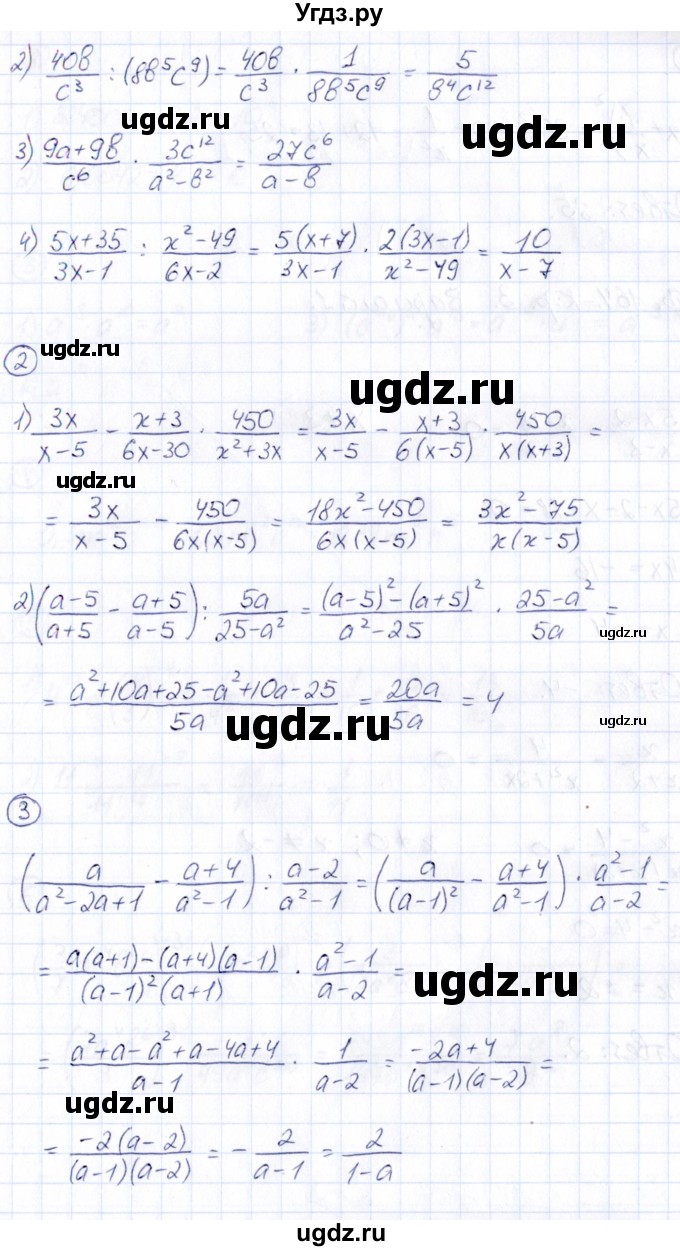 Угдз.ру
2) 40в/c³ : (8в⁵c⁹) = 40в/c³ · 1/8в⁵c⁹ = 5/в⁴c¹²
ugdz.ru ugdz.ru
3) 9a+9в/c⁶ · 3c¹²/a²-в² = 27c⁶/a-в
4) 5x+35/3x-1 : x²-49/6x-2 = 5(x+7)/3x-1 · 2(3x-1)/x²-49 = 10/x-7
2 ugdz.ru
ugdz.ru
1) 3x/x-5 - x+3/6x-30 · 450/x²+3x = 3x/x-5 - x+3/6(x-5) · 450/x(x+3) =
ugdz.ru
= 3x/x-5 - 450/6x(x-5) = 18x²-450/6x(x-5) = 3x²-75/x(x-5)
2) (a-5/a+5 - a+5/a-5) : 5a/25-a² = (a-5)²-(a+5)²/a²-25 · 25-a²/5a =
ugdz.ru
= a²+10a+25-a²+10a-25/5a = 20a/5a = 4
ugdz.ru ugdz.ru
3
(a/a²-2a+1 - a+4/a²-1) : a-2/a²-1 = (a/(a-1)² - a+4/a²-1) · a²-1/a-2 =
= a(a+1)-(a+4)(a-1)/(a-1)²(a+1) · a²-1/a-2 =
ugdz.ru
= a²+a-a²+a-4a+4/a-1 · 1/a-2 = -2a+4/(a-1)(a-2) =
ugdz.ru
= -2(a-2)/(a-1)(a-2) = - 2/a-1 = 2/1-a
ugdz.ru
ugdz.ru